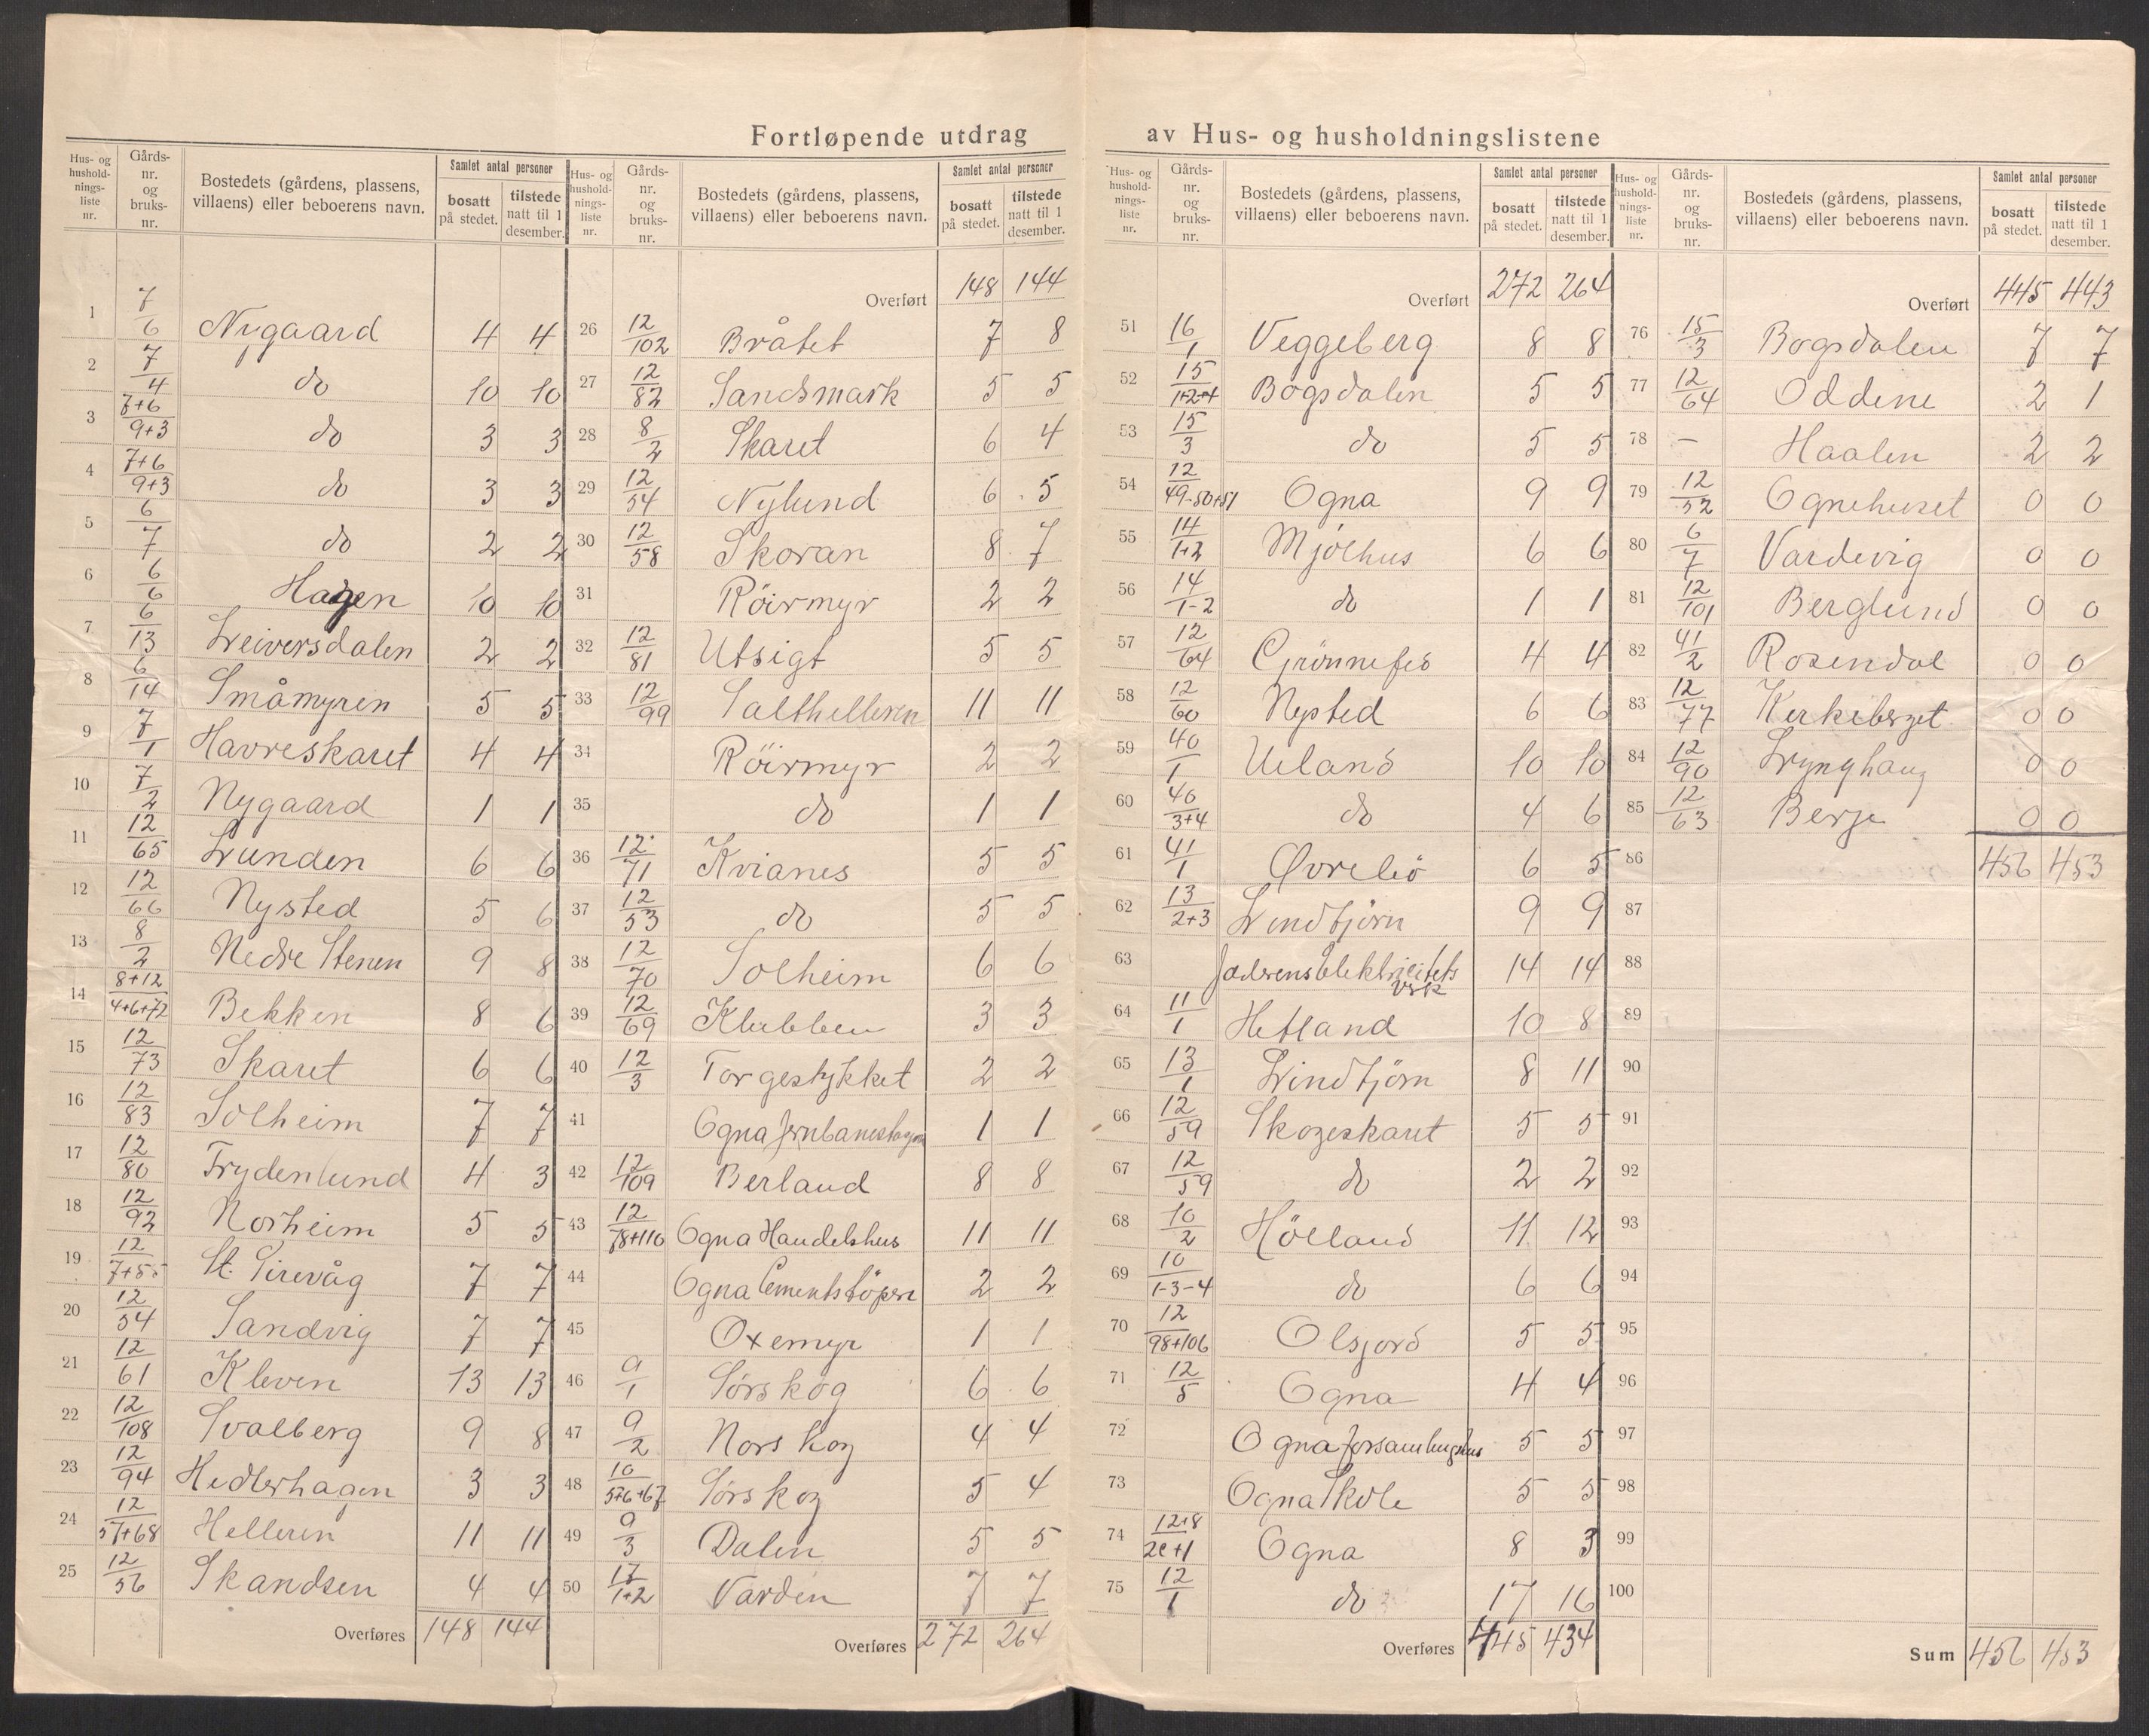 Fortløpende utdrag av Hus- og husholdningslistene
Hus- og hushold-nings-liste nr. | Gårds-nr. og bruks-nr. | Bostedets (gårdens, plassens, villaens) eller beboerens navn. | Samlet antal personer | bosatt på stedet. | tilstede natt til 1 desember.
1 7/6 Nygaard 4 4
2 7/4 do 10 10
3 7+6/9+3 do 3 3
4 7+6/9+3 do 3 3
5 6/7 do 2 2
6 6/6 Hagen 10 10
7 6/13 Leiversdalen 2 2
8 6/14 Småmyren 5 5
9 7/1 Havreskaret 4 4
10 7/2 Nygaard 1 1
11 12/65 Lunden 6 6
12 12/66 Nysted 5 6
13 8/2 Nedre Stenen 9 8
14 8+12/4+6+72 Bekken 8 6
15 12/73 Skaret 6 6
16 12/83 Solheim 7 7
17 12/80 Frydenlund 4 3
18 12/92 Norheim 5 5
19 12/7+55 St. Sirevåg 7 7
20 12/54 Sandvig 7 7
21 12/61 Kleven 13 13
22 12/108 Svalberg 9 8
23 12/94 Hedlerhagen 3 3
24 12/57+68 Helleren 11 11
25 12/56 Skandsen 4 4
Overføres 148 144
Hus- og hushold-nings-liste nr. | Gårds-nr. og bruks-nr. | Bostedets (gårdens, plassens, villaens) eller beboerens navn. | Samlet antal personer | bosatt på stedet. | tilstede natt til 1 desember.
Overført 148 144
26 12/102 Bråtet 7 8
27 12/82 Sandsmark 5 5
28 8/2 Skaret 6 4
29 12/54 Nylund 6 5
30 12/58 Skoran 8 7
31 Röirmyr 2 2
32 12/81 Utsigt 5 5
33 12/99 Salthelleren 11 11
34 Röirmyr 2 2
35 do 1 1
36 12/71 Kvianes 5 5
37 12/53 do 5 5
38 12/70 Solheim 6 6
39 12/69 Klubben 3 3
40 12/3 Torgestykket 2 2
41 Ogna Jernbanestasjon 1 1
42 12/109 Berland 8 8
43 12/78+110 Ogna Handelshus 11 11
44 Ogna Cementstöperi 2 2
45 Oxemyr 1 1
46 9/1 Sørskog 6 6
47 9/2 Norskog 4 4
48 10/5+6+67 Sørskog 5 4
49 9/3 Dalen 5 5
50 17/1+2 Varden 7 7
Overføres 272 264
Hus- og hushold-nings-liste nr. | Gårds-nr. og bruks-nr. | Bostedets (gårdens, plassens, villaens) eller beboerens navn. | Samlet antal personer | bosatt på stedet. | tilstede natt til 1 desember.
Overført 272 264
51 16/1 Veggeberg 8 8
52 15/1+2+4 Bogsdalen 5 5
53 15/3 do 5 5
54 12/49-50+51 Ogna 9 9
55 14/1+2 Mjölhus 6 6
56 14/1-2 do 1 1
57 12/64 Grönnefes 4 4
58 12/60 Nysted 6 6
59 40/1 Ueland 10 10
60 40/3+4 do 4 6
61 41/1 Øvrebö 6 5
62 13/2+3 Lindtjörn 9 9
63 Jæderens Elektricitets verk 14 14
64 11/1 Hetland 10 8
65 13/1 Lindtjörn 8 11
66 12/59 Skogeskaret 5 5
67 12/59 do 2 2
68 10/2 Hölland 11 12
69 10/1-3-4 do 6 6
70 12/98+106 Olsjord 5 5
71 12/5 Ogna 4 4
72 Ogna forsamlingshus 5 5
73 Ogna Skole 5 5
74 12+8/2e+1 Ogna 8 3
75 12/1 do 17 16
Overføres 445 434
Hus- og hushold-nings-liste nr. | Gårds-nr. og bruks-nr. | Bostedets (gårdens, plassens, villaens) eller beboerens navn. | Samlet antal personer | bosatt på stedet. | tilstede natt til 1 desember.
Overført 445 443
76 15/3 Bogsdalen 7 7
77 12/64 Oddene 2 1
78 - Haalen 2 2
79 12/52 Ognehuset 0 0
80 6/7 Vardevig 0 0
81 12/101 Berglund 0 0
82 41/2 Rosendal 0 0
83 12/77 Kirkeberget 0 0
84 12/90 Lynghaug 0 0
85 12/63 Berge 0 0
86 456 453
87
88
89
90
91
92
93
94
95
96
97
98
99
100
Sum 456 453